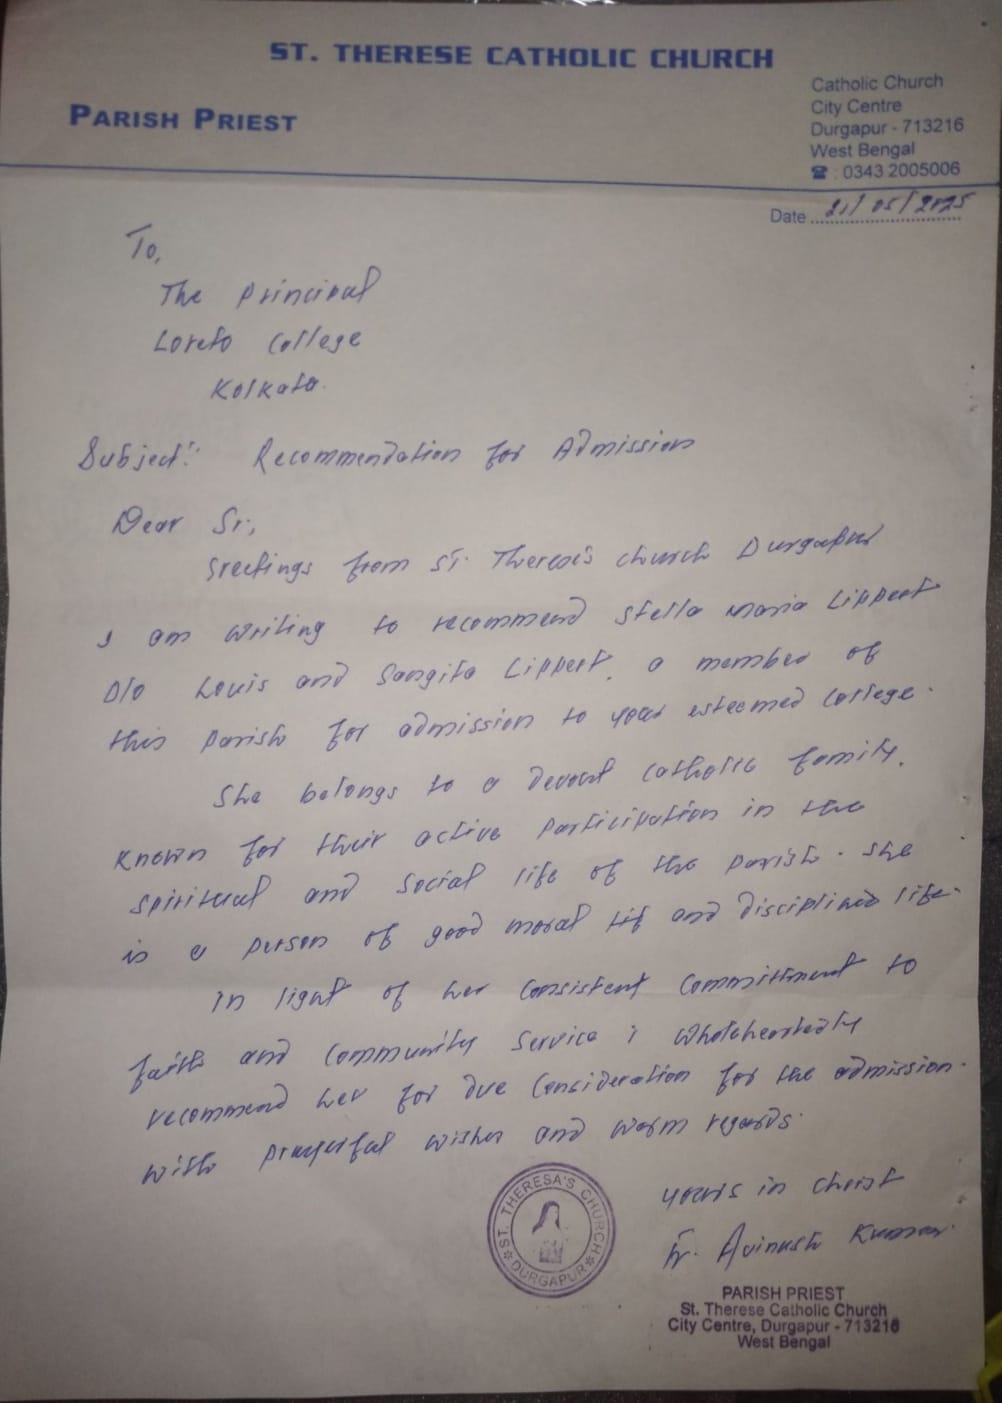 ST. THERESE CATHOLIC CHURCH
PARISH PRIEST
Catholic Church
City Centre
Durgapur - 713216
West Bengal
☎ : 0343 2005006
Date 21/05/2025
To,
The Principal
Loreto College
Kolkata.
Subject:- Recommendation for Admission
Dear Sr.,
Greetings from ST. Therese's church Durgapur
I am writing to recommend Stella Maria Lippert
D/o Louis and Sangita Lippert, a member of
this parish for admission to your esteemed college.
She belongs to a devout catholic family,
known for their active participation in the
spiritual and social life of the parish. She
is a person of good moral and disciplined life.
In light of her consistent commitment to
faith and community service i wholeheartedly
recommend her for due consideration for the admission.
with prayerful wishes and warm regards.
yours in christ
Fr. Avinash Kumar.
ST. THERESA'S CHURCH
DURGAPUR
PARISH PRIEST
St. Therese Catholic Church
City Centre, Durgapur - 713216
West Bengal